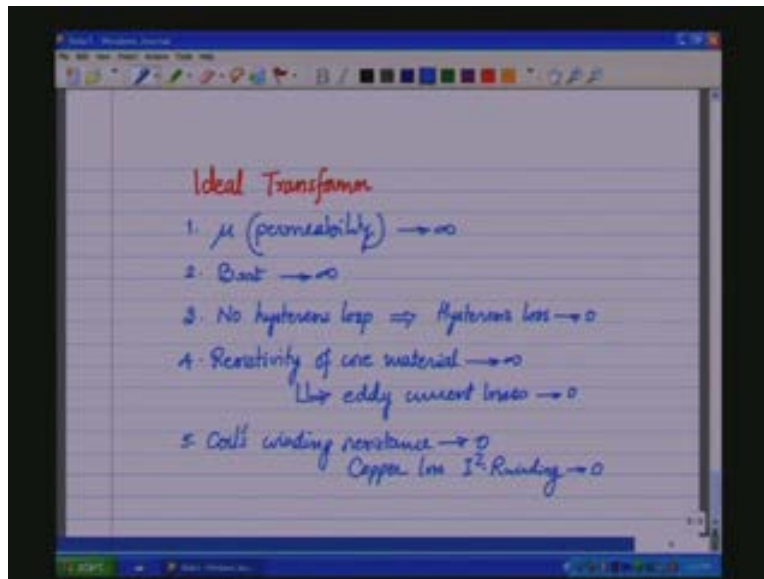 Note1 - Windows Journal
File Edit View Insert Actions Tools Help
Ideal Transformer
1. μ (permeability) → ∞
2. Bsat → ∞
3. No hysteresis loop ⇒ Hysteresis loss → 0
4. Resistivity of core material → ∞
↳ eddy current losses → 0
5. Coil's winding resistance → 0
Copper loss I². Rwinding → 0